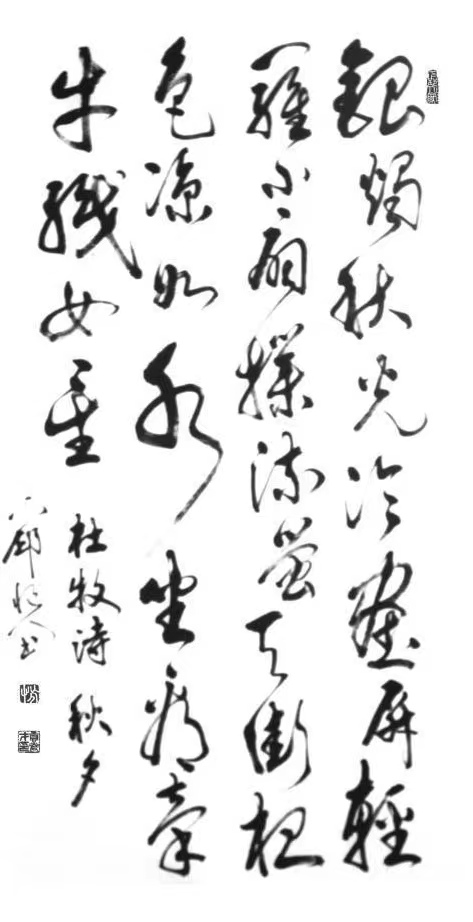 銀燭秋光冷畫屏輕
羅小扇撲流螢天街
色涼如水坐看牽
牛織女星
杜牧詩 秋夕